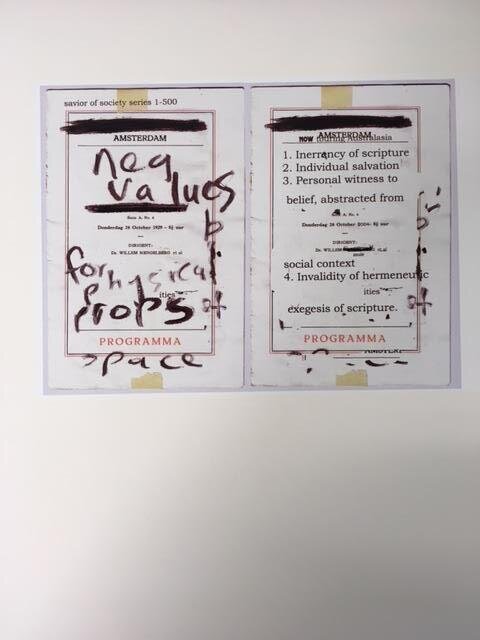 savior of society series 1-500
AMSTERDAM
neg
values
b
Serie A, No. 4
Donderdag 26 October 1929 - 8¼ uur
DIRIGENT:
Dr. WILLEM MENGELBERG et al
for physical
ities
props of
PROGRAMMA
space
AMSTERDAM
NOW touring Australasia
1. Inerrancy of scripture
2. Individual salvation
3. Personal witness to
belief, abstracted from
A, No. 4
Donderdag 26 October 2004 - 8¼ uur
DIRIGENT:
Dr. WILLEM et al
social context
4. Invalidity of hermeneutic
ities
of
exegesis of scripture.
PROGRAMMA